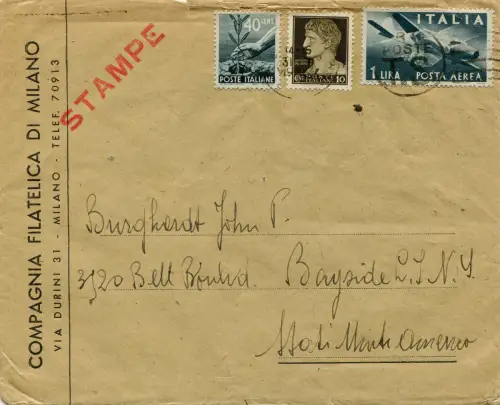 COMPAGNIA FILATELICA DI MILANO
VIA DURINI 31 - MILANO - TELEF. 70913
STAMPE
40 CENT.
POSTE ITALIANE
10
ITALIA
1 LIRA POSTA AEREA
POSTE
Burghardt John P.
3920 Bell Boulvd. Bayside L.I. N.Y.
Stati Uniti America